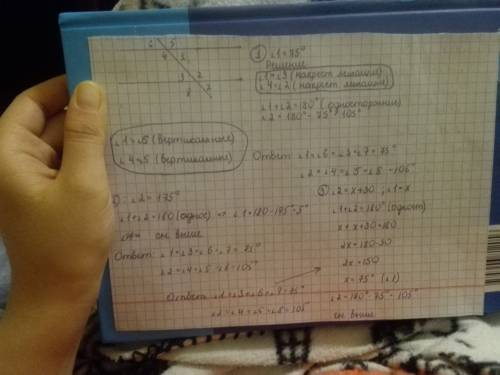 6 5
4 1
3 2
8 7
① ∠1=75°
Решение
∠1=∠3 (накрест лежащие)
∠4=∠2 (накрест лежащие)
∠1+∠2=180° (односторонние)
∠2=180°-75°=105°
∠1=∠6 (вертикальные)
∠4=∠5 (вертикальные)
Ответ: ∠1=∠6=∠3=∠7=75°
∠2=∠4=∠5=∠8=105°
∠2=175°
∠1+∠2=180 (однос) => ∠1=180-175=5°
см. выше
Ответ: ∠1=∠3=∠6=∠7=75°
∠2=∠4=∠5=∠8=105°
③ ∠2=x+30, ∠1=x
∠1+∠2=180° (одност)
x+x+30=180
2x=180-30
2x=150
x=75° (∠1)
∠2=180°-75°=105°
см. выше
Ответ: ∠1=∠3=∠6=∠7=75°
∠2=∠4=∠5=∠8=105